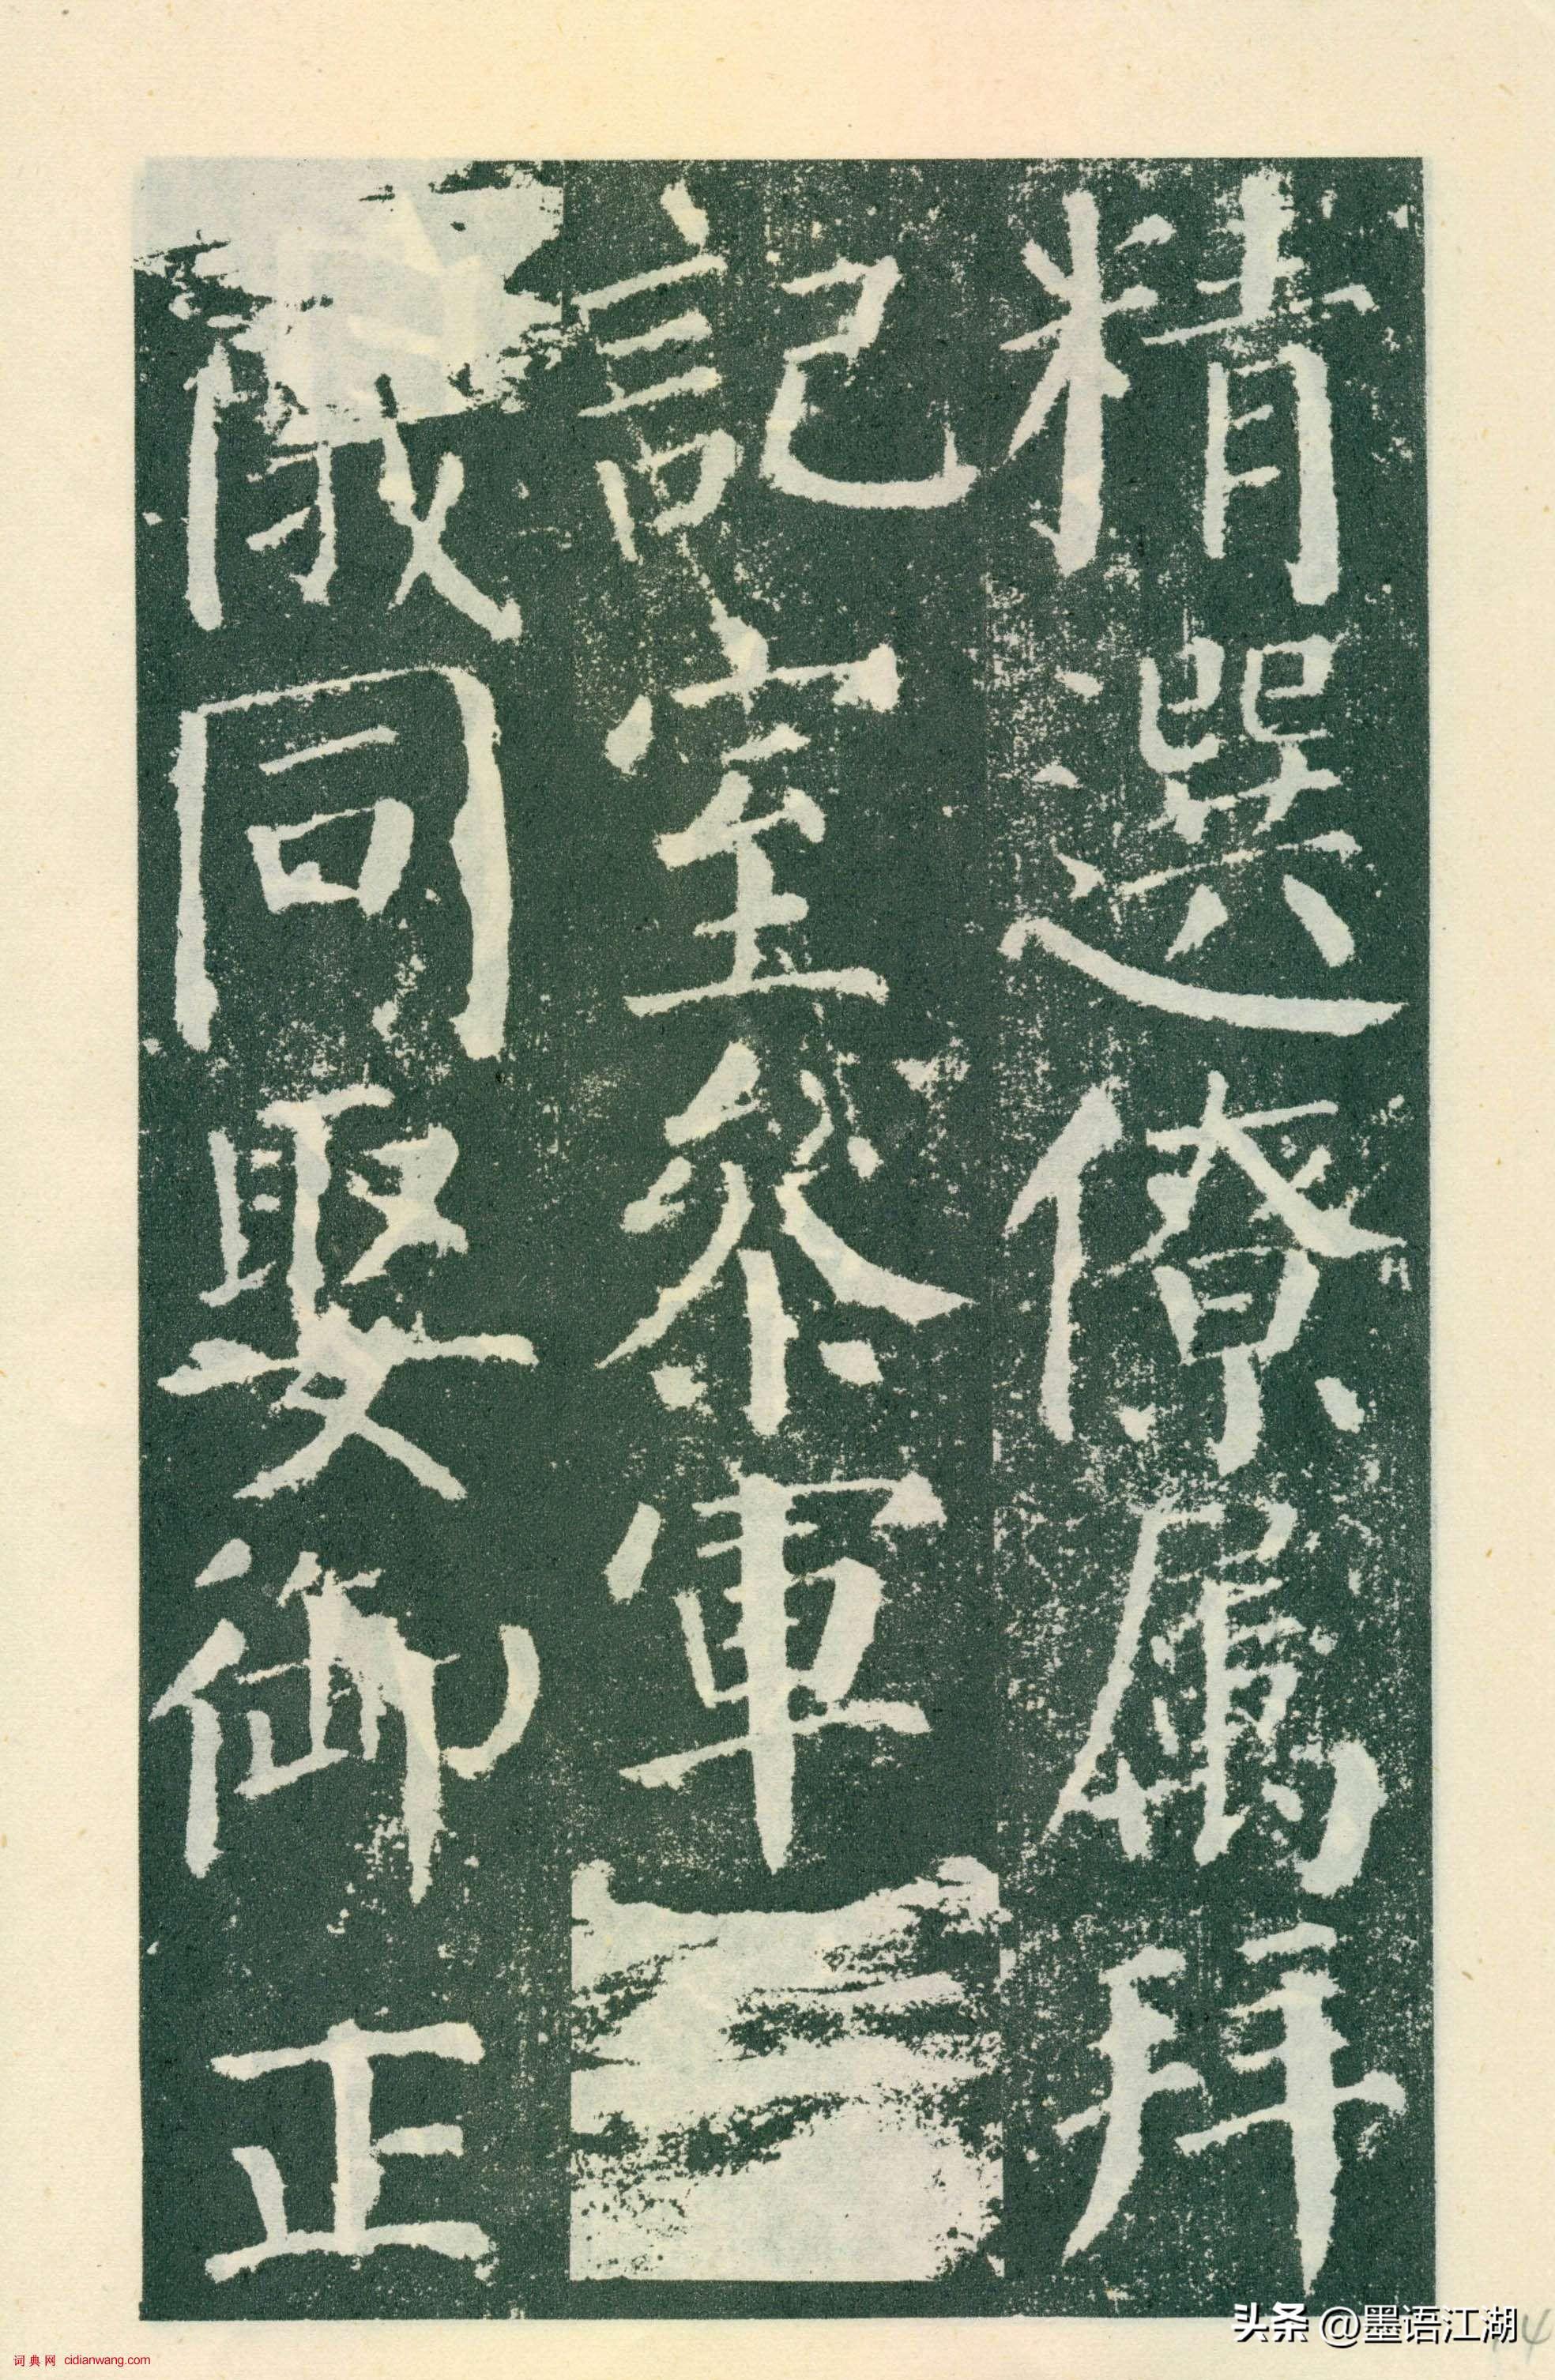 精選僚属拜
記室叅軍
儀同娶御正
头条 @墨语江湖
词典网 cidianwang.com